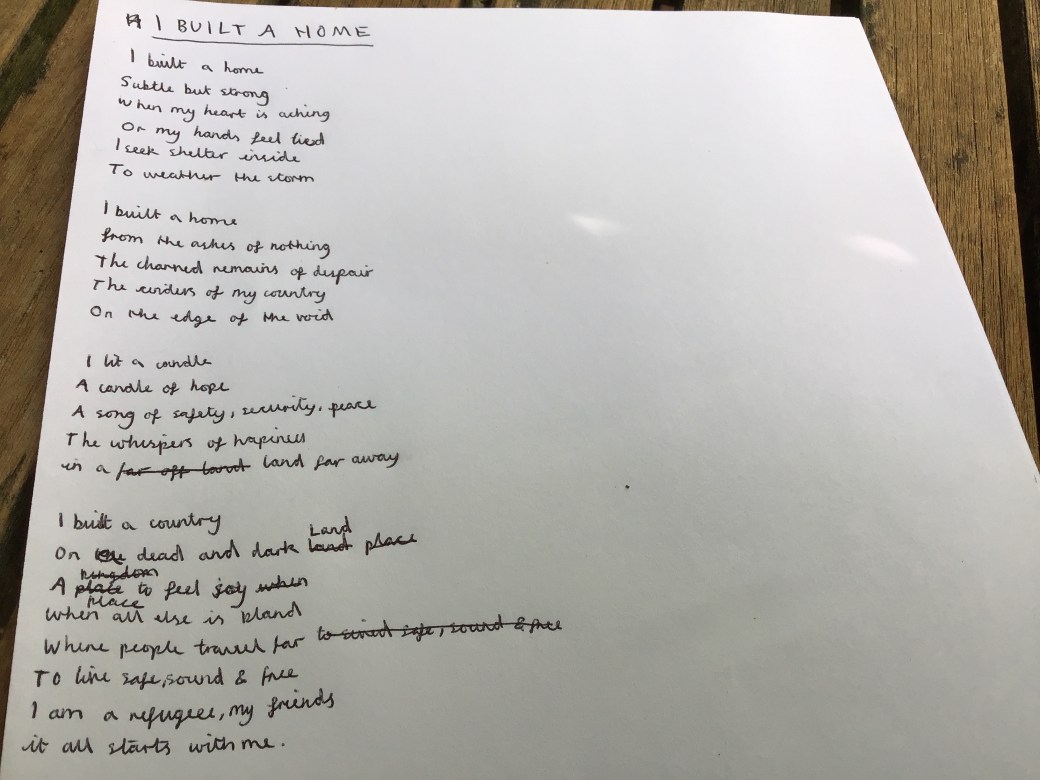 I BUILT A HOME
I built a home
Subtle but strong
When my heart is aching
Or my hands feel tied
I seek shelter inside
To weather the storm
I built a home
from the ashes of nothing
The charred remains of despair
The cinders of my country
On the edge of the void
I lit a candle
A candle of hope
A song of safety, security, peace
The whispers of hapiness
in a far off land land far away
I built a country
Land
On dead and dark land place
kingdom
A place to feel joy when
place
When all else is bland
Where people travel far to avoid safe, sound & free
To live safe, sound & free
I am a refugee, my friends
it all starts with me.